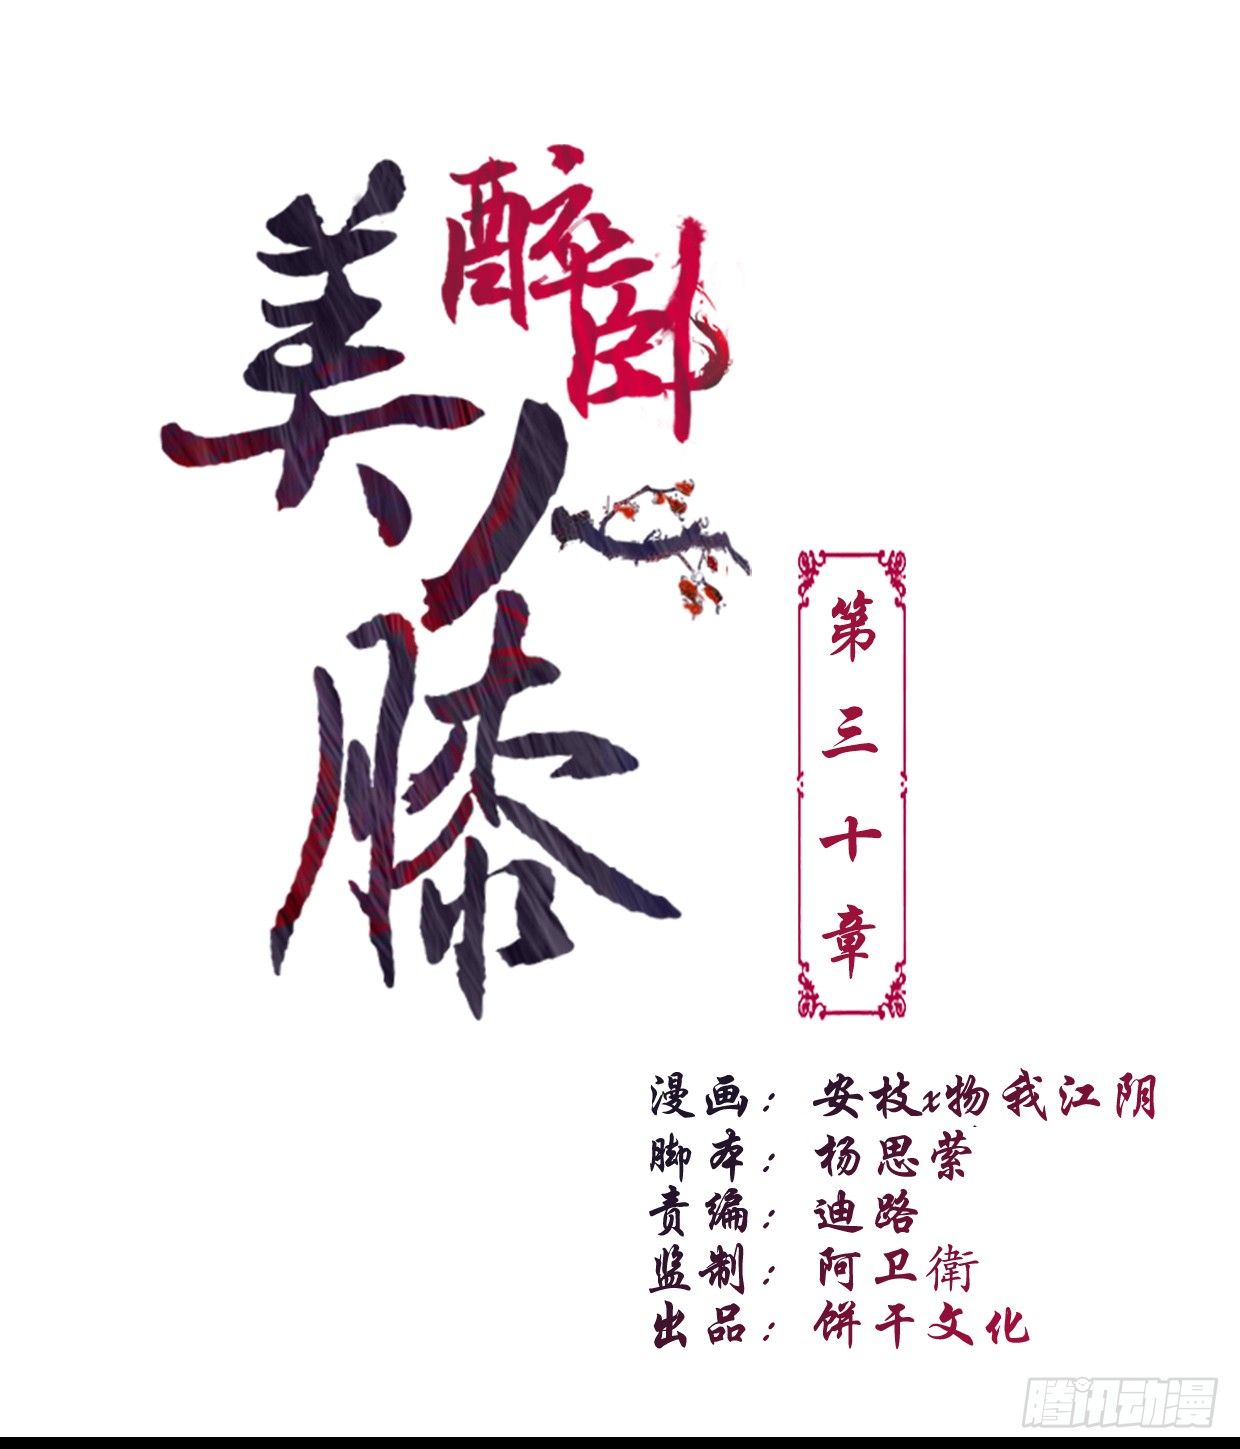 醉卧
美人膝
第三十章
漫画：安枝x物我江阴
脚本：杨思萦
责编：迪路
监制：阿卫衛
出品：饼干文化
腾讯动漫